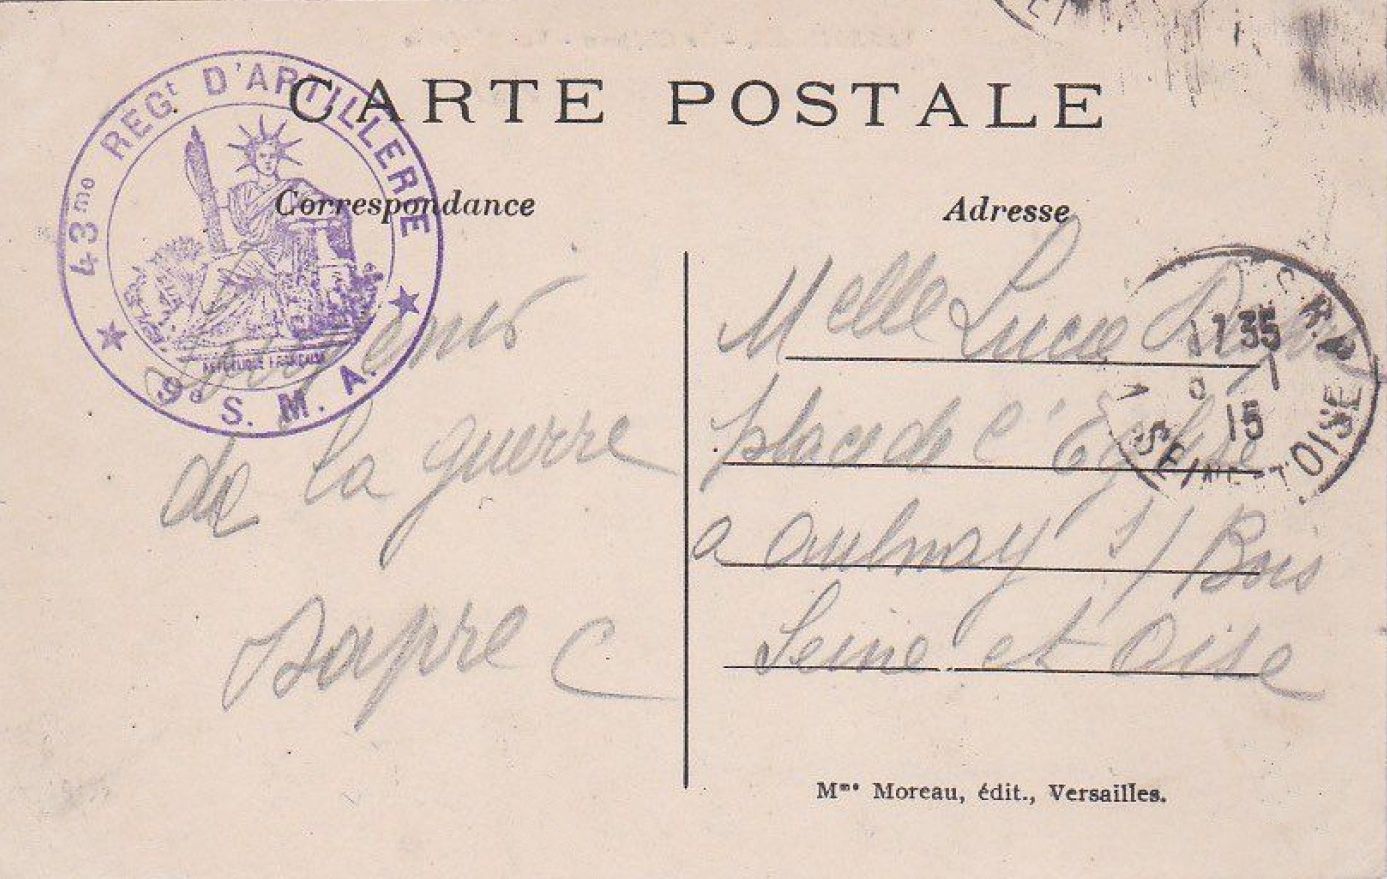 CARTE POSTALE
43me REGt D'ARTILLERIE
RÉPUBLIQUE FRANÇAISE
9e S. M. A.
Correspondance
Souvenir
de la guerre
Dapre C
Adresse
Melle Lucie
place de l'Eglise
a aulnay s/ Bois
Seine et Oise
17 35
1
15
SEINE-ET-OISE
Mme Moreau, édit., Versailles.